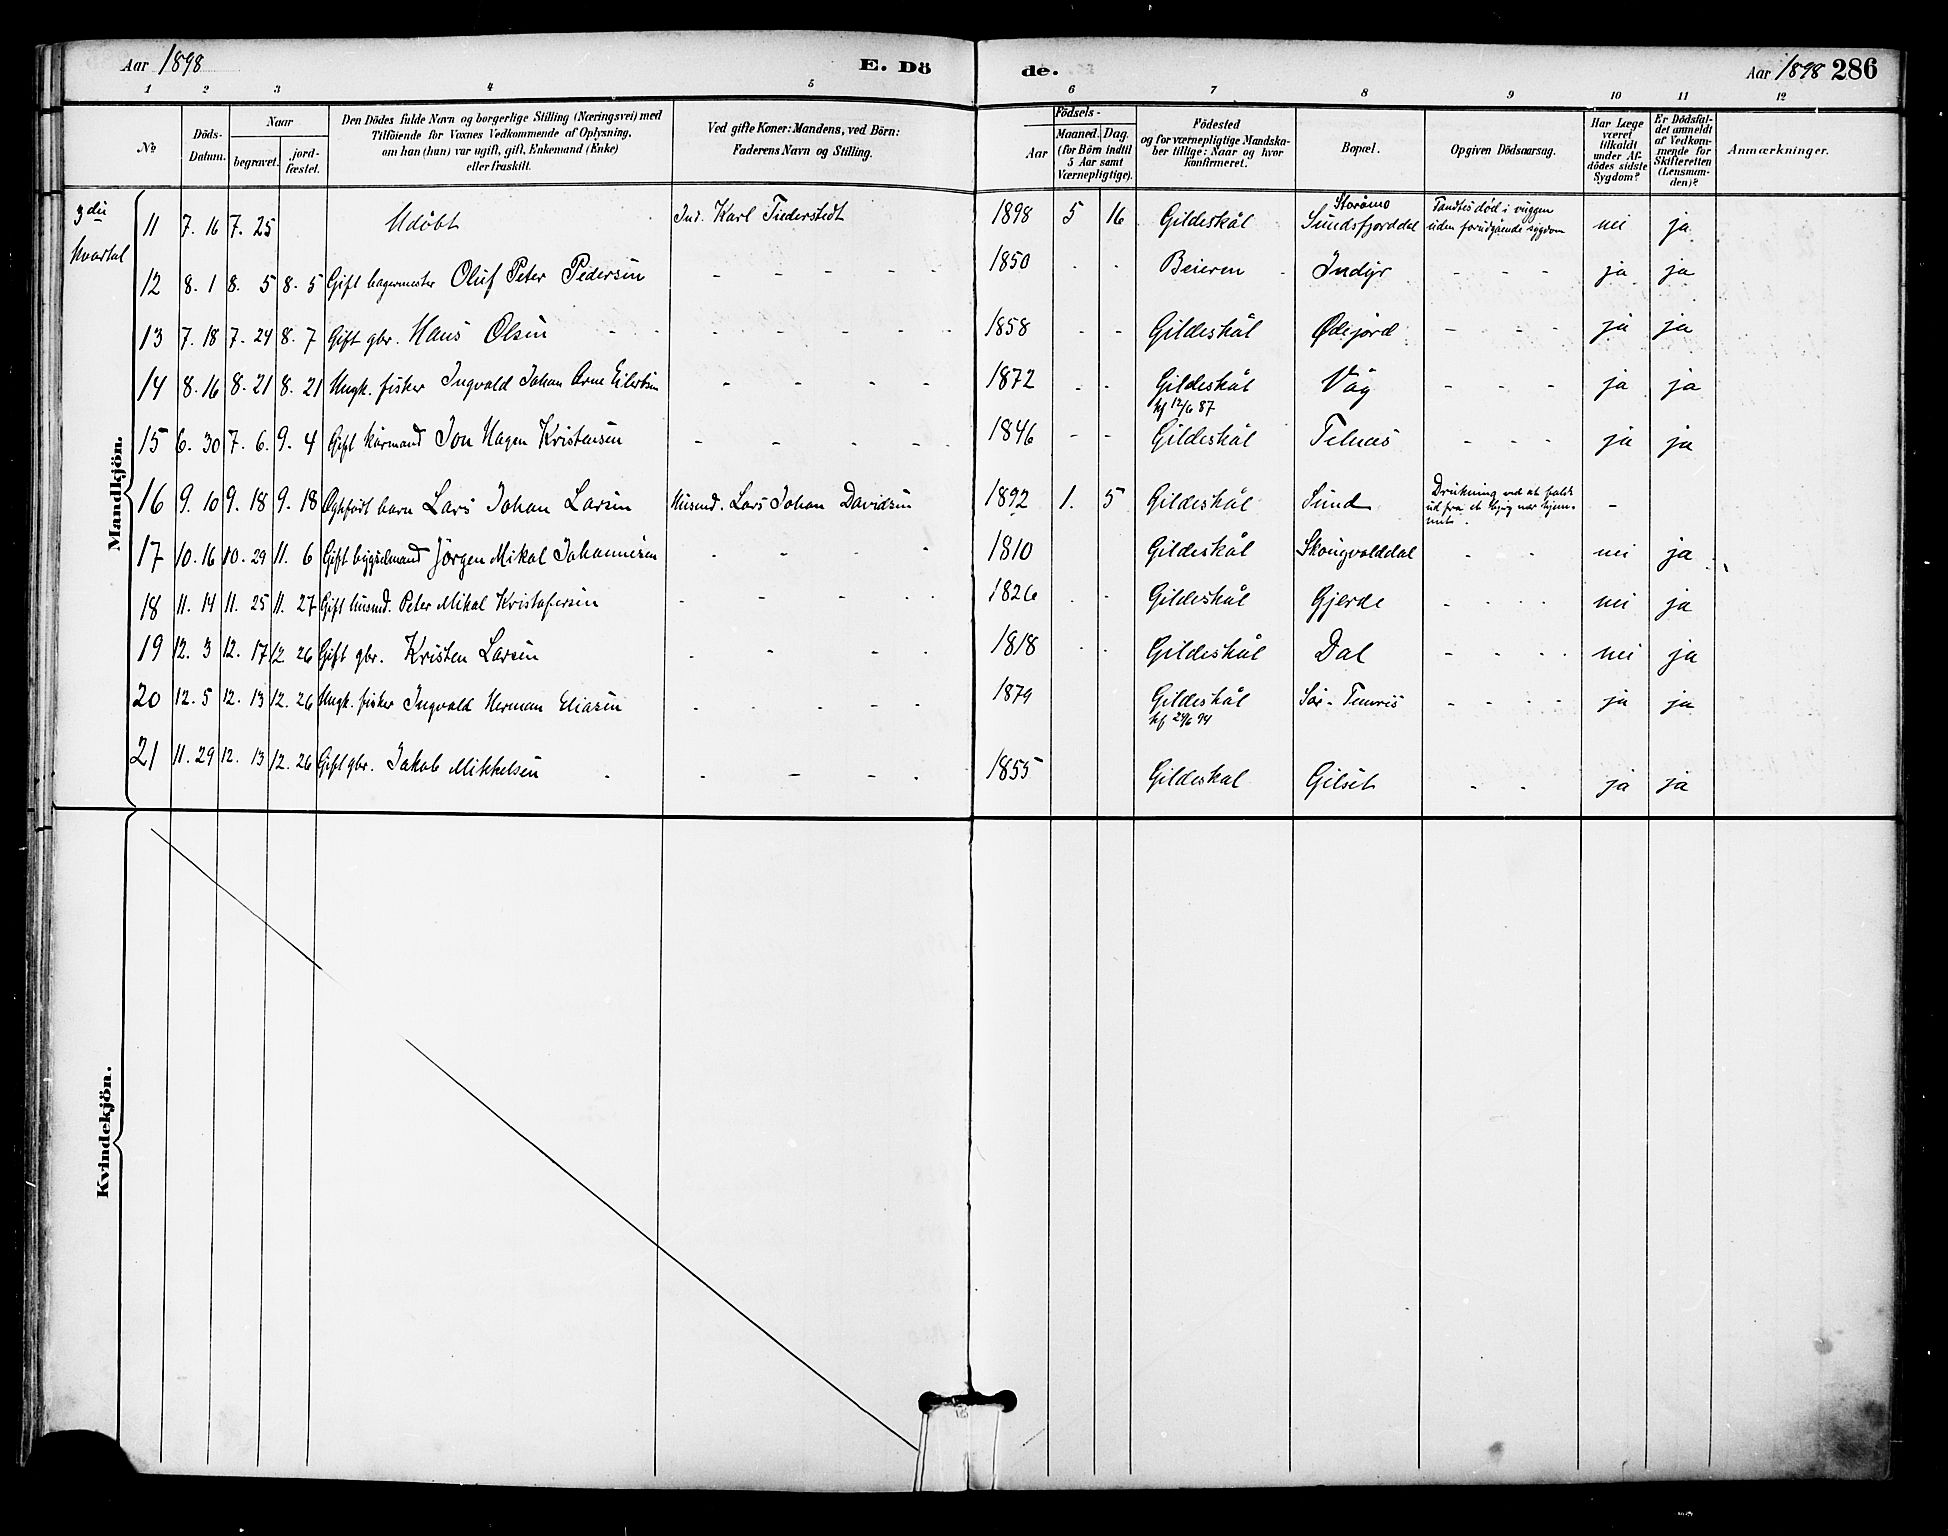 Aar 1898 E. Dö de. Aar 1898 286
1 2 3 4 5 6 7 8 9 10 11 12
No
Döds-Datum.
Naar
begravet. jord-fæstet.
Den Dödes fulde Navn og borgerlige Stilling (Næringsvei) med
Tilföiende for Voxnes Vedkommende af Oplysning,
om han (hun) var ugift, gift, Enkemand (Enke)
eller fraskilt.
Ved gifte Koner: Mandens, ved Börn:
Faderens Navn og Stilling.
Födsels-
Aar Maaned. Dag.
(for Börn indtil
5 Aar samt
Værnepligtige).
Födested
og for værnepligtige Mandska-
ber tillige: Naar og hvor
konfirmeret.
Bopæl.
Opgiven Dödsaarsag.
Har Læge
været
tilkaldt
under Af-
dödes sidste
Sygdom?
Er Dödsfal-
det anmeldt
af Vedkom-
mende for
Skifteretten
(Lensman-
den)?
Anmærkninger.
3die
Kvartal
Mandkjön.
11 7. 16 7. 25 Udøbt Ind. Karl Tiederstedt 1898 5 16 Gildeskål Storåmo Sundsfjorddal Fandtes død i vuggen uden forudgående sygdom nei ja
12 8. 1 8. 5 8. 5 Gift bagermester Oluf Peter Pedersen - - - - - 1850 - - Beieren Indyr - - - ja ja
13 7. 18 7. 24 8. 7 Gift gbr. Hans Olsen - - - - - 1858 - - Gildeskål Ødejord - - - ja ja
14 8. 16 8. 21 8. 21 Ungk. fisker Ingvald Johan Arne Eilertsen - - - - 1872 - - Gildeskål Våg - - - ja ja
kf 12/6 87
15 6. 30 7. 6. 9. 4 Gift kårmand Jon Hagen Kristensen - - - - - 1846 - - Gildeskål Telnes - - - ja ja
16 9. 10 9. 18 9. 18 Ægtefødt barn Lars Johan Larsen Husmd. Lars Johan Davidsen 1892 1. 5 Gildeskål Sund Drukning ved at falde ud fra et berg nær hjemmet. -
17 10. 16 10. 29 11. 6 Gift bygselmand Jörgen Mikal Johannesen - - - - 1810 Gildeskål Skougvolddal - - nei ja
18 11. 14 11. 25 11. 27 Gift husmd. Peter Mikal Kristofersen - - - - - 1826 - - Gildeskål Gjerde - - - - nei ja
19 12. 3 12. 17 12. 26 Gift gbr. Kristen Larsen - - - - 1818 - - Gildeskål Dal - - - - nei ja
20 12. 5 12. 13 12. 26 Ungk. fisker Ingvald Herman Eliasen - - - - - 1879 Gildeskål Sør- - - - - ja ja
kf 24/6 94
21 11. 29 12. 13 12. 26 Gift gbr. Jakob Mikkelsen - - - - - 1855 Gildeskal Gilset - - ja ja
Kvindekjön.